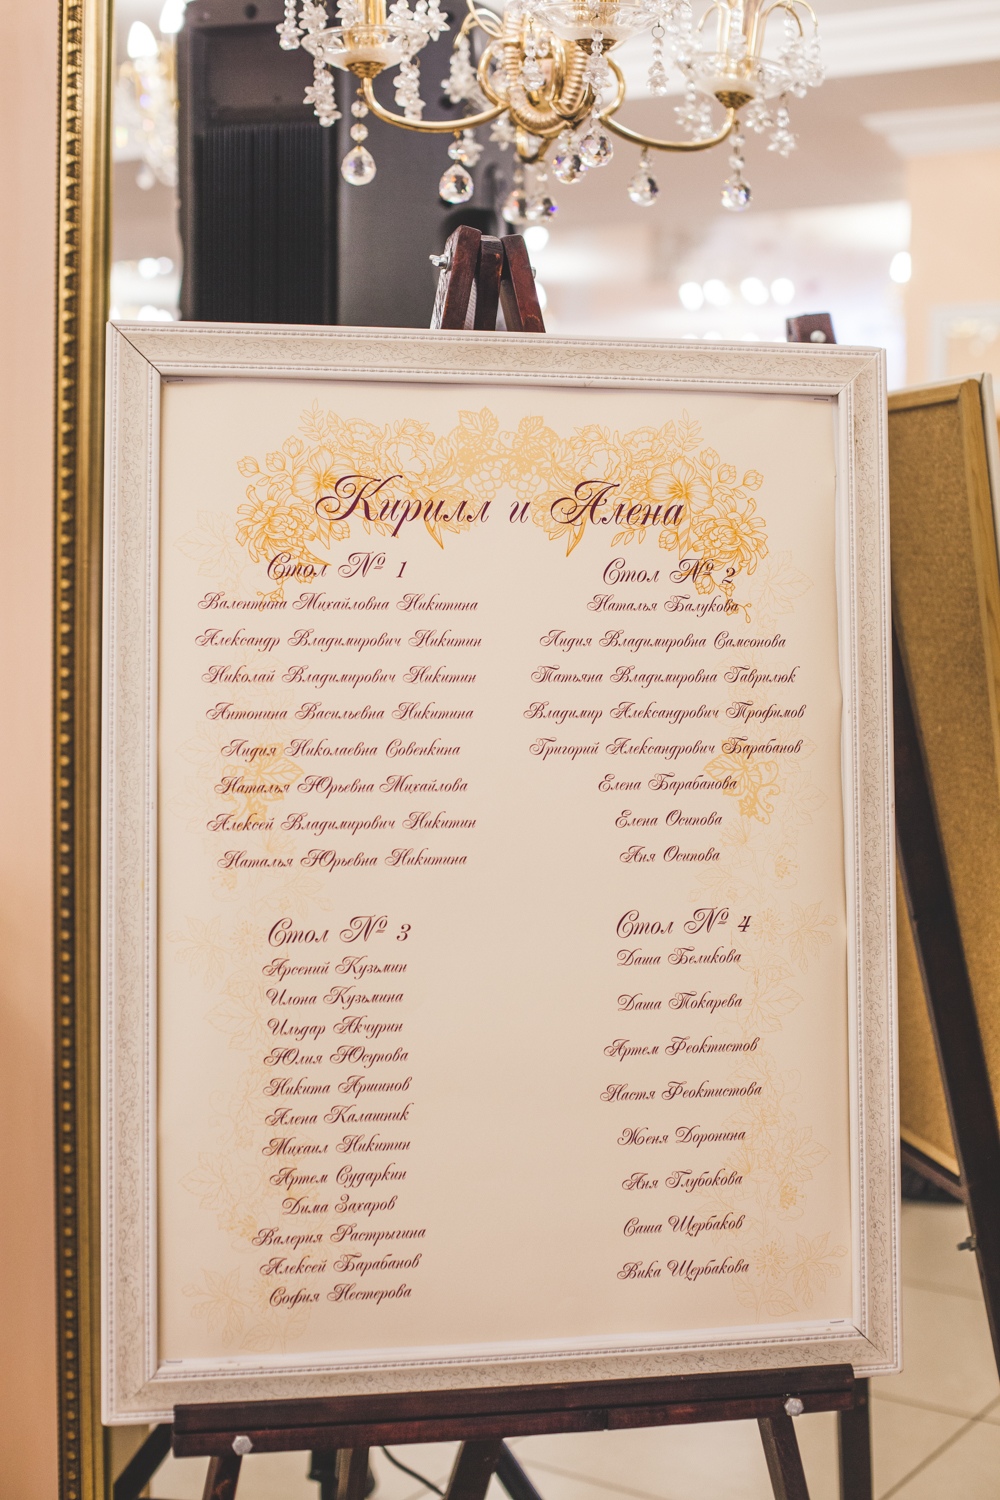 Кирилл и Алена
Стол № 1
Валентина Михайловна Никитина
Александр Владимирович Никитин
Николай Владимирович Никитин
Антонина Васильевна Никитина
Лидия Николаевна Совенкина
Наталья Юрьевна Михайлова
Алексей Владимирович Никитин
Наталья Юрьевна Никитина
Стол № 2
Наталья Балукова
Лидия Владимировна Самсонова
Татьяна Владимировна Гаврилюк
Владимир Александрович Трофимов
Григорий Александрович Барабанов
Елена Барабанова
Елена Осипова
Аня Осипова
Стол № 3
Арсений Кузьмин
Илона Кузьмина
Ильдар Акчурин
Юлия Юсупова
Никита Аршинов
Алена Калашник
Михаил Никитин
Артем Сударкин
Дима Захаров
Валерия Растрыгина
Алексей Барабанов
София Нестерова
Стол № 4
Даша Беликова
Даша Токарева
Артем Феоктистов
Настя Феоктистова
Женя Доронина
Аня Глубокова
Саша Щербаков
Вика Щербакова